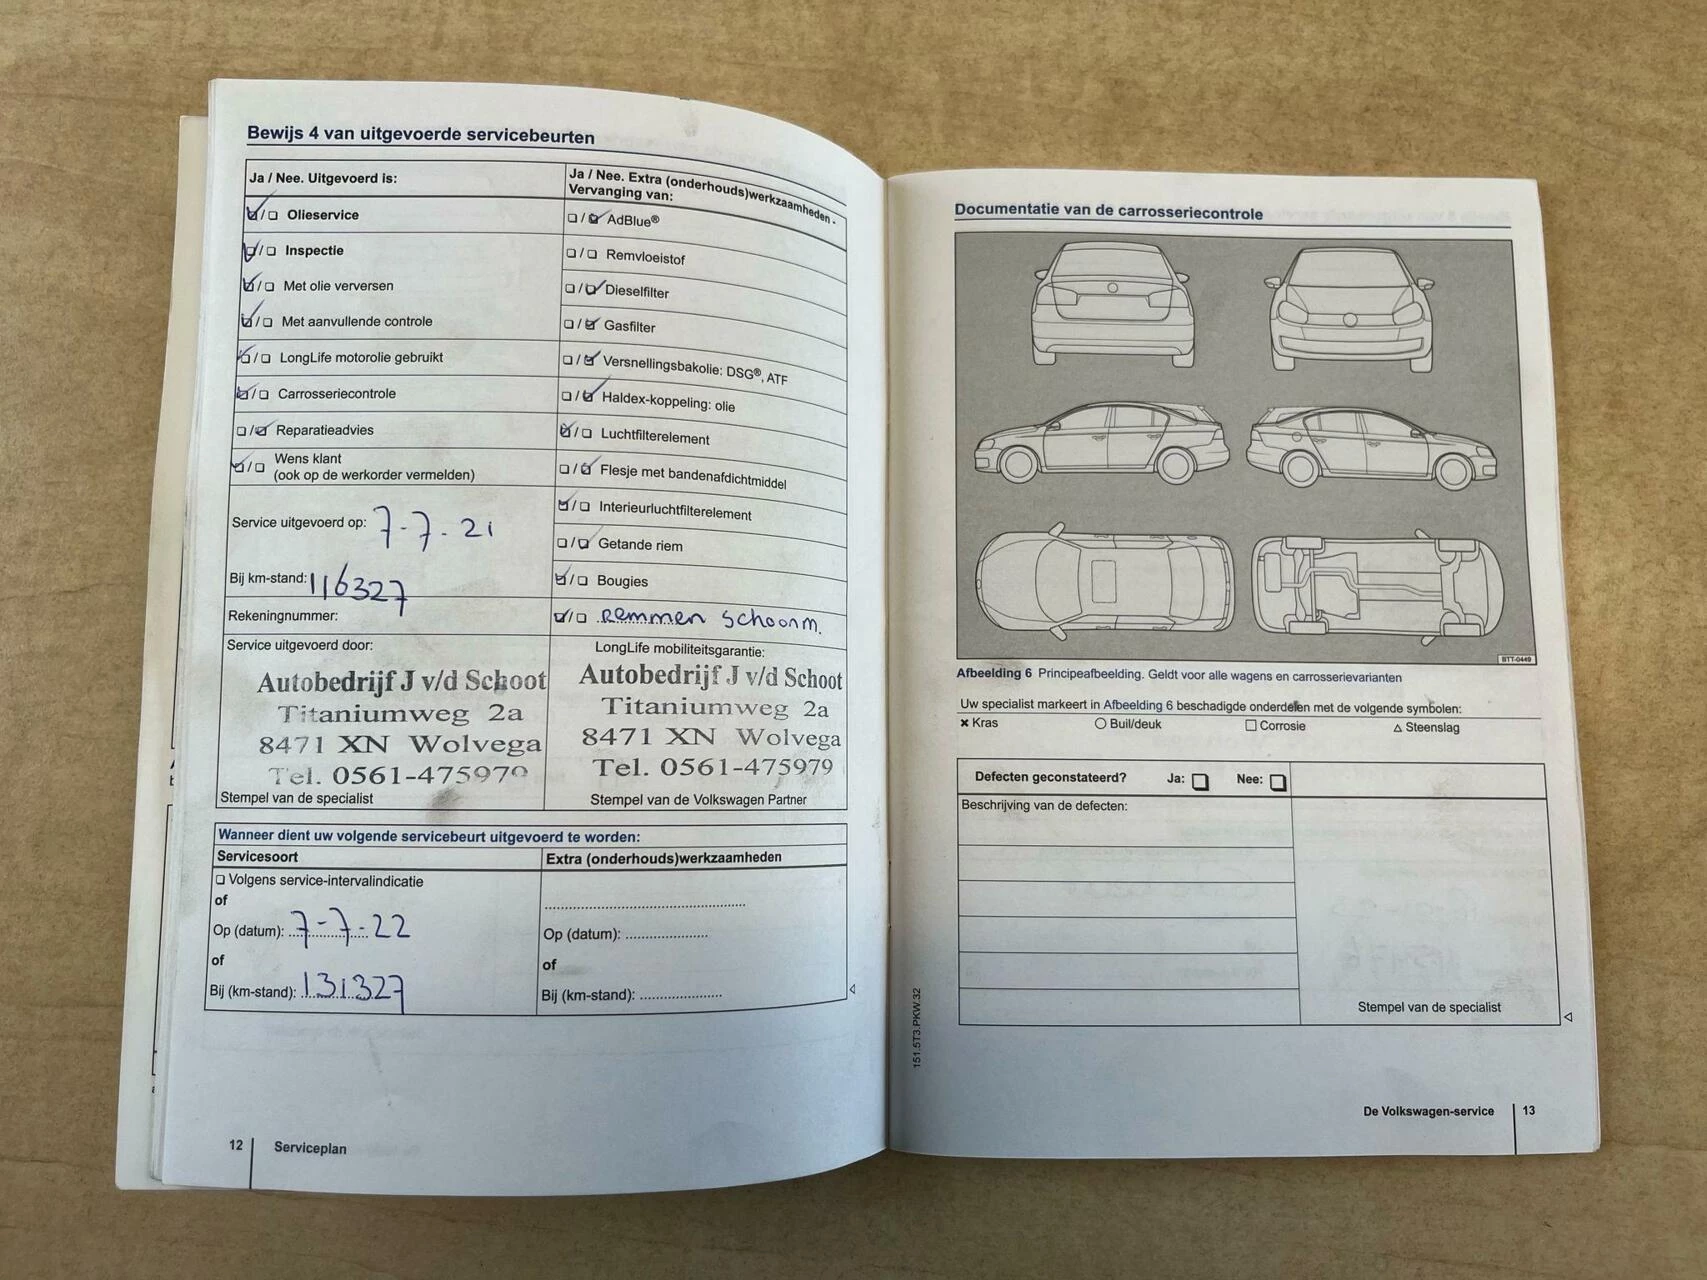 Bewijs 4 van uitgevoerde servicebeurten
Ja / Nee. Uitgevoerd is:
☑/☐ Olieservice
☑/☐ Inspectie
☑/☐ Met olie verversen
☑/☐ Met aanvullende controle
☑/☐ LongLife motorolie gebruikt
☑/☐ Carrosseriecontrole
☐/☑ Reparatieadvies
☑/☐ Wens klant
(ook op de werkorder vermelden)
Service uitgevoerd op: 7-7-21
Bij km-stand: 116327
Rekeningnummer:
Ja / Nee. Extra (onderhouds)werkzaamheden -
Vervanging van:
☐/☑ AdBlue®
☐/☐ Remvloeistof
☐/☑ Dieselfilter
☐/☑ Gasfilter
☐/☑ Versnellingsbakolie: DSG®, ATF
☐/☑ Haldex-koppeling: olie
☑/☐ Luchtfilterelement
☐/☑ Flesje met bandenafdichtmiddel
☑/☐ Interieurluchtfilterelement
☐/☑ Getande riem
☑/☐ Bougies
☑/☐ Remmen schoonm.
Service uitgevoerd door:
Autobedrijf J v/d Schoot
Titaniumweg 2a
8471 XN Wolvega
Tel. 0561-475979
Stempel van de specialist
LongLife mobiliteitsgarantie:
Autobedrijf J v/d Schoot
Titaniumweg 2a
8471 XN Wolvega
Tel. 0561-475979
Stempel van de Volkswagen Partner
Wanneer dient uw volgende servicebeurt uitgevoerd te worden:
Servicesoort
☐ Volgens service-intervalindicatie
of
Op (datum): 7-7-22
of
Bij (km-stand): 131327
Extra (onderhouds)werkzaamheden
Op (datum):
of
Bij (km-stand):
12 Serviceplan
Documentatie van de carrosseriecontrole
BTT-0449
Afbeelding 6 Principeafbeelding. Geldt voor alle wagens en carrosserievarianten
Uw specialist markeert in Afbeelding 6 beschadigde onderdelen met de volgende symbolen:
✖ Kras ○ Buil/deuk □ Corrosie △ Steenslag
Defecten geconstateerd? Ja: ☐ Nee: ☐
Beschrijving van de defecten:
Stempel van de specialist
151.5T3.PKW.32
De Volkswagen-service 13